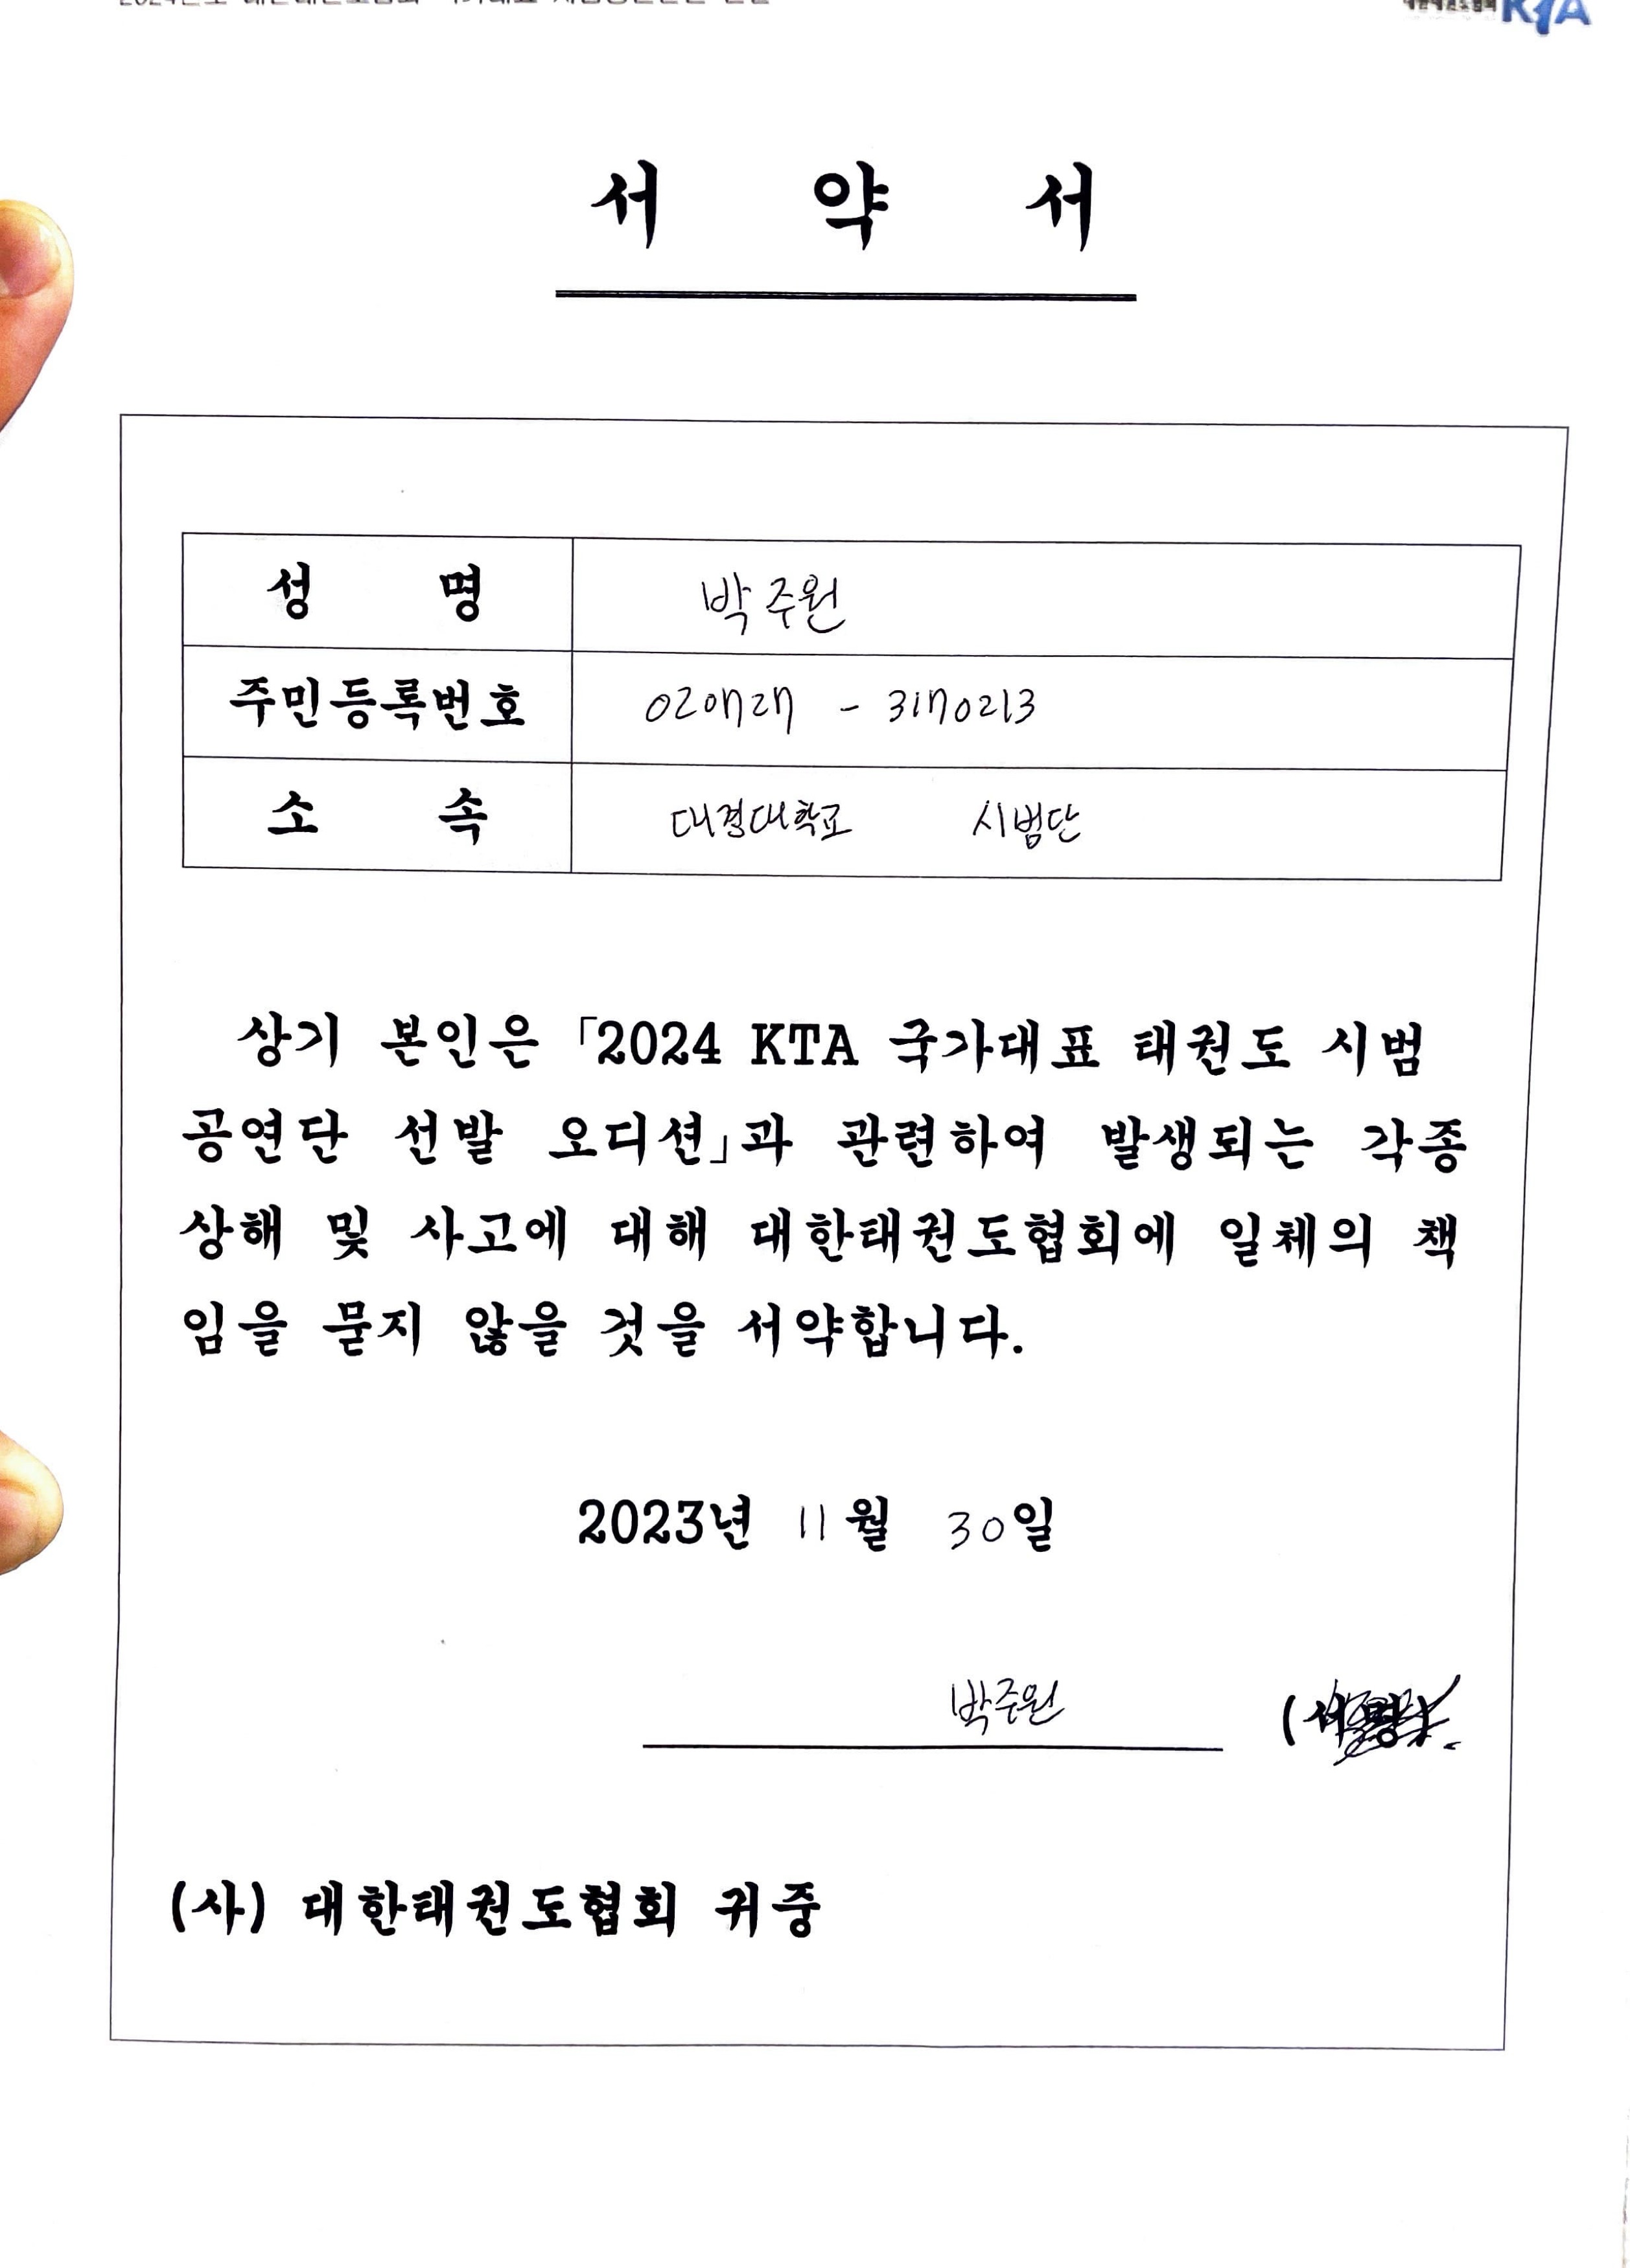 KTA
서 약 서
성 명 박주원
주민등록번호 020727 - 3170213
소 속 대경대학교 시범단
상기 본인은 「2024 KTA 국가대표 태권도 시범
공연단 선발 오디션」과 관련하여 발생되는 각종
상해 및 사고에 대해 대한태권도협회에 일체의 책
임을 묻지 않을 것을 서약합니다.
2023년 11월 30일
박주원 (서명)
(사) 대한태권도협회 귀중